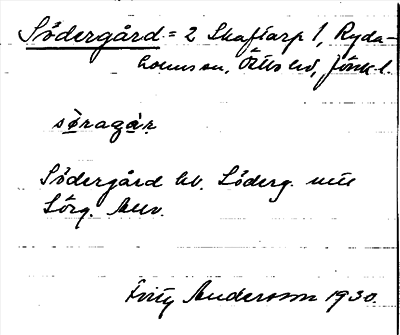 Södergård = 2 Skaftarp 1, Ryda-
holms sn, Östbo hd, Jönk l.
söragår
Södergård bl. Söderg.
Sörg. Allv.
Fritz Andersson 1930.